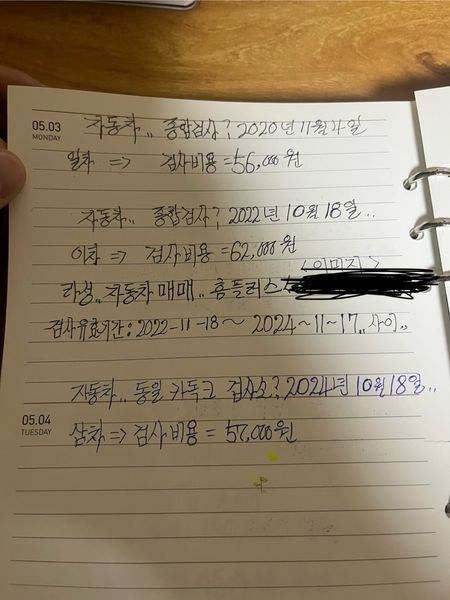 05.03
MONDAY
자동차.. 종합검사? 2020년 11월 4일
일차 => 검사비용 = 56,000원
자동차.. 종합검사? 2022년 10월 18일..
이차 => 검사비용 = 62,000원
<이미지>
라성.. 자동차매매.. 홈플러스
검사유효기간: 2022-11-18~ 2024~11~17.. 사이..
자동차.. 동일 카독크 검사소? 2024년 10월 18일..
05.04
TUESDAY
삼차 => 검사비용 = 57,000원